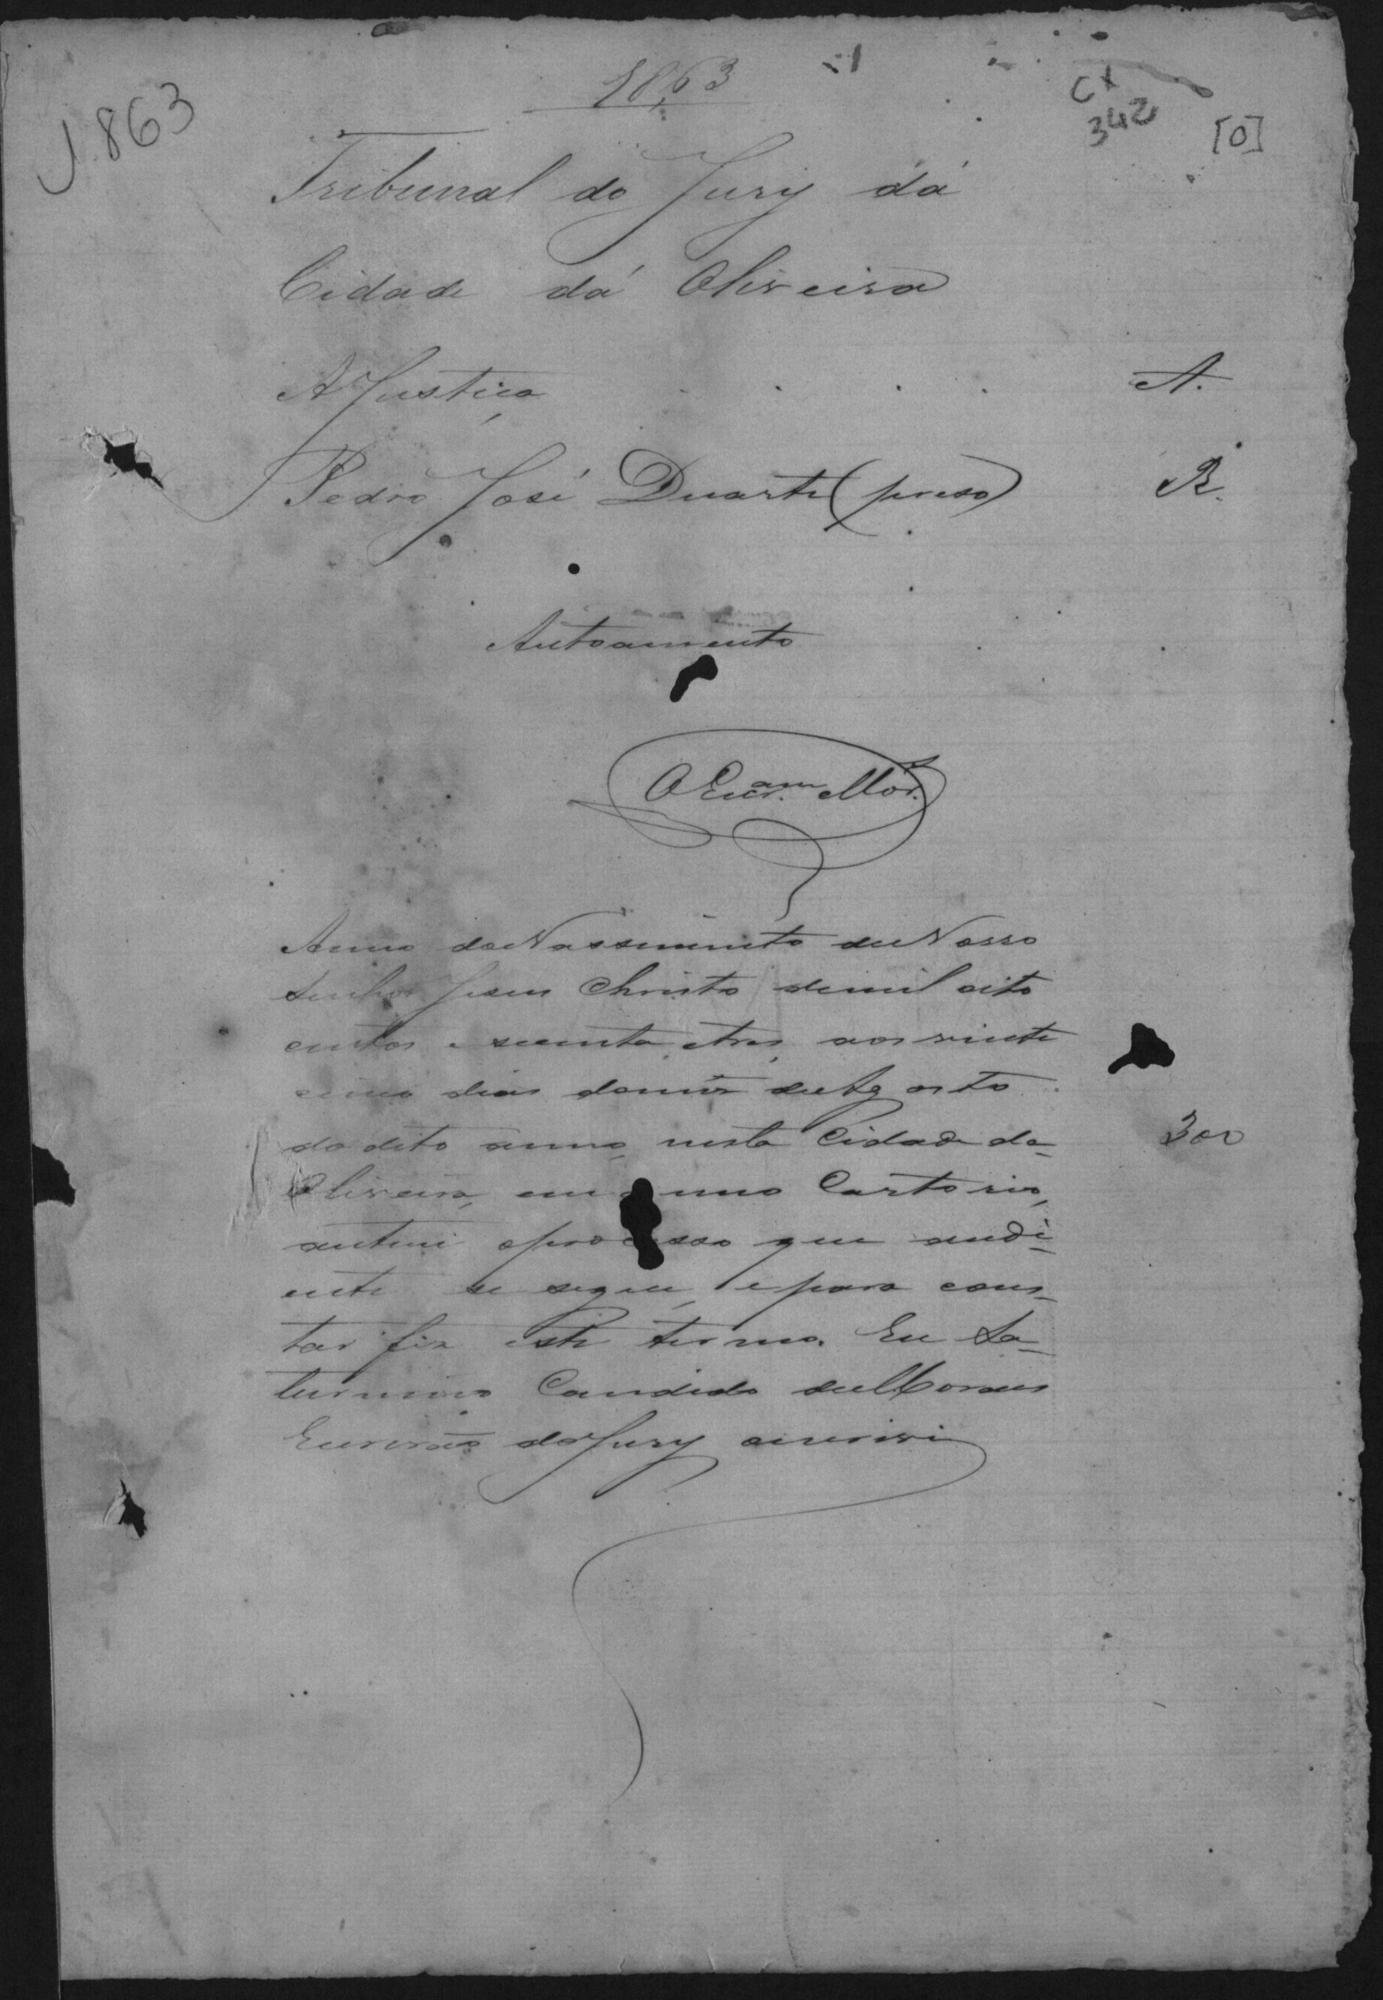 1863
1863
Cx
342
[0]
Tribunal do Jury da
Cidade da Oliveira
A Justiça A.
Pedro José Duarte (preso) R.
Autoamento
O Escr.am Mór.
Anno do Nassimento de Nosso
Senhor Jesus Christo de mil oito
centos e secenta e tres, aos vinte
cinco dias do mes de Agosto
do dito anno, nesta Cidade da
Oliveira, em Cartorio,
autuei o processo que audi-
ente se segue, e para cons-
tar fiz este termo. Eu Sa-
turnino Candido de Moraes
Escrivão do Jury o escrivi
300